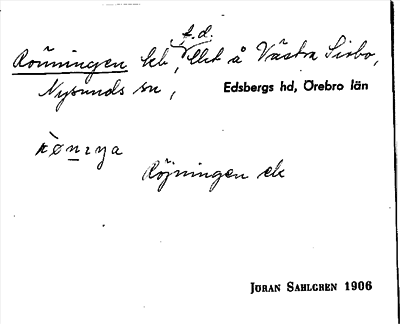 f.d.
Rönningen lht, lht å Västra Sirbo,
Nysunds sn, Edsbergs hd, Örebro län
Röjningen ek
JÖRAN SAHLGREN 1906